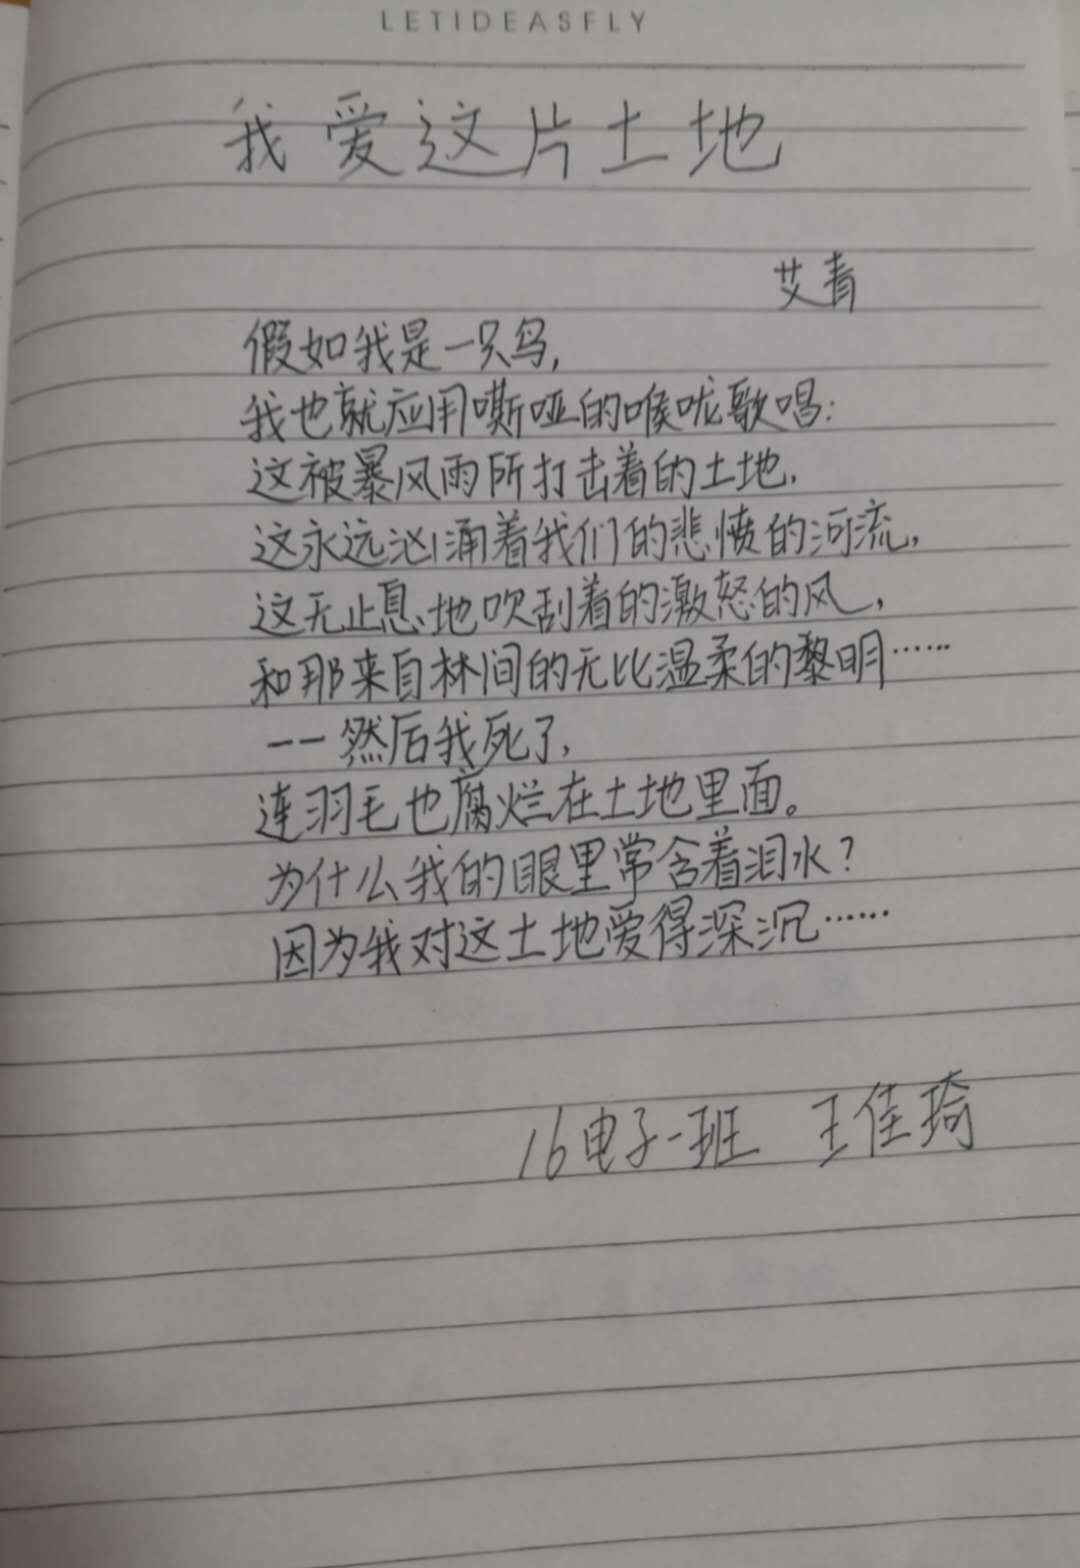 LETIDEASFLY
我爱这片土地
艾青
假如我是一只鸟,
我也就应用嘶哑的喉咙歌唱:
这被暴风雨所打击着的土地,
这永远汹涌着我们的悲愤的河流,
这无止息地吹刮着的激怒的风,
和那来自林间的无比温柔的黎明……
——然后我死了,
连羽毛也腐烂在土地里面。
为什么我的眼里常含着泪水?
因为我对这土地爱得深沉……
16电子一班 王佳琦